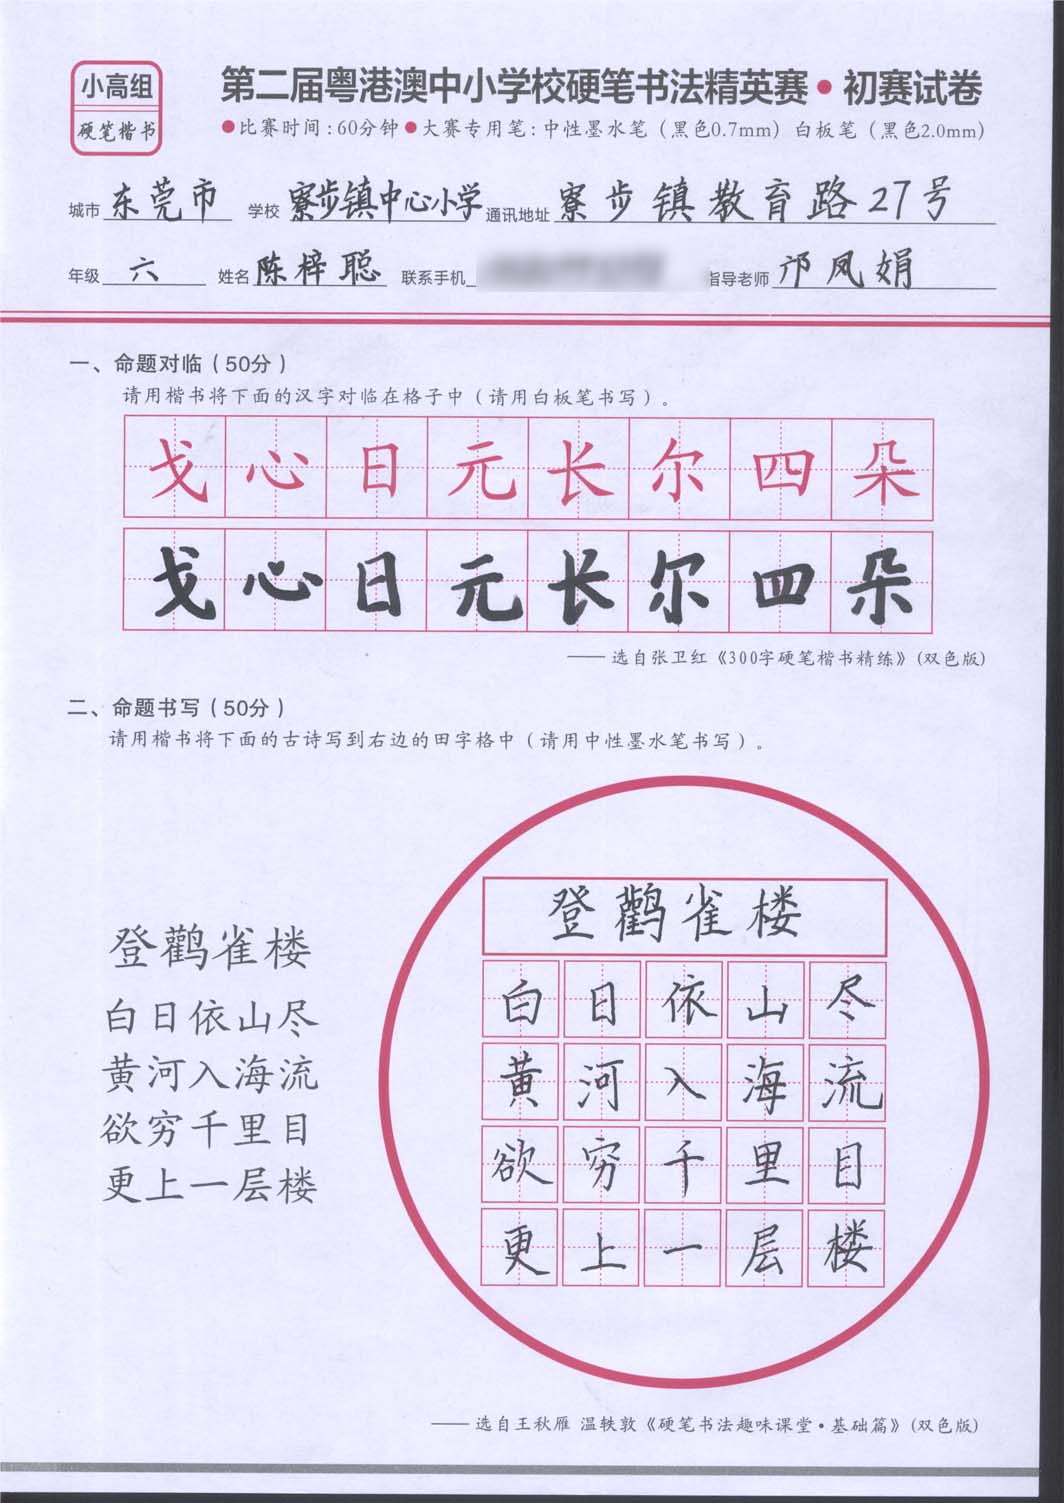 小高组
硬笔楷书
第二届粤港澳中小学校硬笔书法精英赛●初赛试卷
●比赛时间:60分钟●大赛专用笔:中性墨水笔(黑色0.7mm)白板笔(黑色2.0mm)
城市 东莞市 学校 寮步镇中心小学 通讯地址 寮步镇教育路27号
年级 六 姓名 陈梓聪 联系手机 指导老师 邝凤娟
一、命题对临(50分)
请用楷书将下面的汉字对临在格子中(请用白板笔书写)。
戈心日元长尔四朵
戈心日元长尔四朵
——选自张卫红《300字硬笔楷书精练》(双色版)
二、命题书写(50分)
请用楷书将下面的古诗写到右边的田字格中(请用中性墨水笔书写)。
登鹳雀楼
白日依山尽
黄河入海流
欲穷千里目
更上一层楼
登鹳雀楼
白日依山尽
黄河入海流
欲穷千里目
更上一层楼
——选自王秋雁 温轶敦《硬笔书法趣味课堂·基础篇》(双色版)